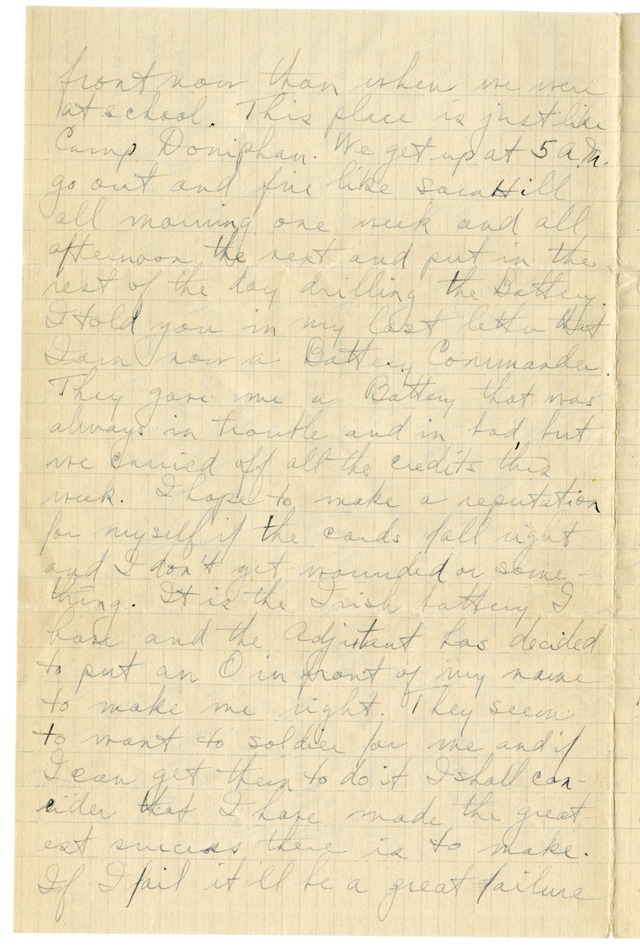 front now than when we were
at school. This place is just like
Camp Doniphan. We get up at 5 A.M.
go out and fire like sara Hill
all morning one week and all
afternoon the next and put in the
rest of the day drilling the Battery.
I told you in my last letter that
I am now a Battery Commander.
They gave me a Battery that was
always in trouble and in bad, but
we carried off all the credits this
week. I hope to make a reputation
for myself if the cards fall right
and I don't get wounded or some-
thing. It is the Irish battery I
have and the Adjutant has decided
to put an O in front of my name
to make me right. They seem
to want to soldier for me and if
I can get them to do it I shall con-
cider that I have made the great
est success there is to make.
If I fail it'll be a great failure